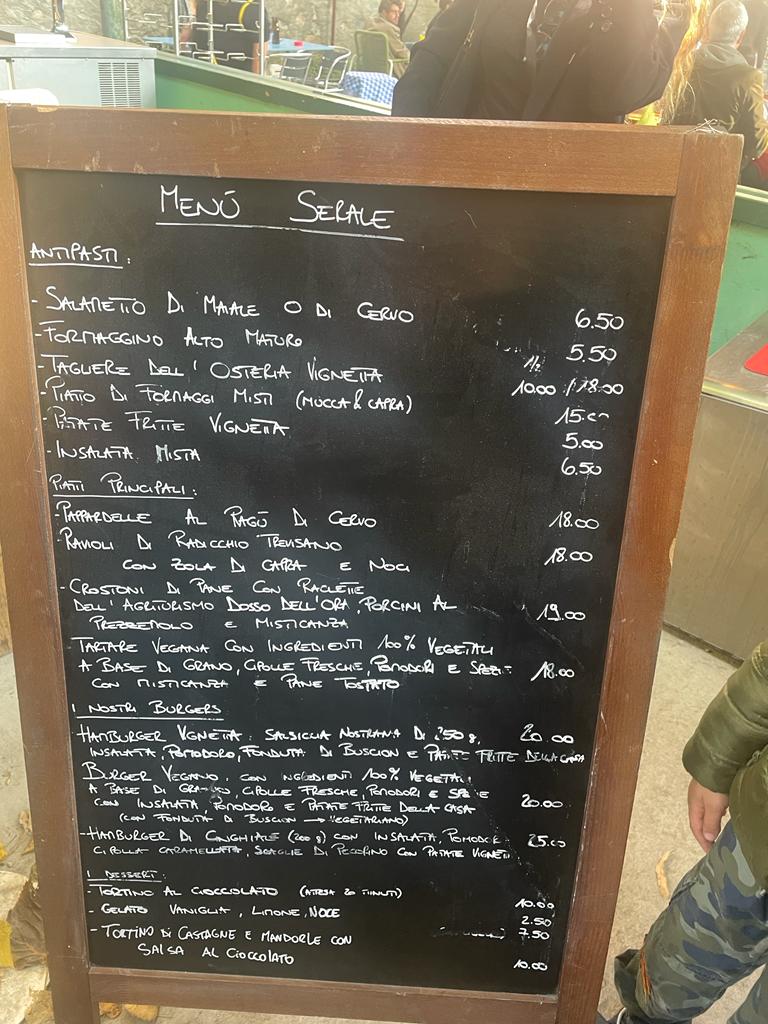 MENÙ SERALE
ANTIPASTI:
- SALAMETTO DI MAIALE O DI CERVO 6.50
- FORMAGGINO ALTO MATURO 5.50
- TAGLIERE DELL' OSTERIA VIGNETTA 1/2 10.00 / 18.00
- PIATTO DI FORMAGGI MISTI (MUCCA & CAPRA) 15.00
- PATATE FRITTE VIGNETTA 5.00
- INSALATA MISTA 6.50
PIATTI PRINCIPALI:
- PAPPARDELLE AL RAGÙ DI CERVO 18.00
- RAVIOLI DI RADICCHIO TREVISANO 18.00
CON ZOLA DI CAPRA E NOCI
- CROSTONI DI PANE CON RACLETTE
DELL'AGRITURISMO DOSSO DELL'ORA, PORCINI AL 19.00
PREZZEMOLO E MISTICANZA
TARTARE VEGANA CON INGREDIENTI 100% VEGETALI
A BASE DI GRANO, CIPOLLE FRESCHE, POMODORI E SPEZIE 18.00
CON MISTICANZA E PANE TOSTATO
I NOSTRI BURGERS
HAMBURGER VIGNETTA: SALSICCIA NOSTRANA DI 250 g, 20.00
INSALATA, POMODORO, FONDUTA DI BUSCION E PATATE FRITTE DELLA CASA
BURGER VEGANO, CON INGREDIENTI 100% VEGETALI
A BASE DI GRANO, CIPOLLE FRESCHE, POMODORI E SPEZIE
CON INSALATA, POMODORO E PATATE FRITTE DELLA CASA 20.00
(CON FONDUTA DI BUSCION → VEGETARIANO)
- HAMBURGER DI CINGHIALE (200 g) CON INSALATA, POMODORO 25.00
CIPOLLA CARAMELLATA, SCAGLIE DI PECORINO CON PATATE VIGNETTA
I DESSERT:
- TORTINO AL CIOCCOLATO (ATTESA 20 MINUTI) 10.00
- GELATO VANIGLIA, LIMONE, NOCE 2.50
7.50
- TORTINO DI CASTAGNE E MANDORLE CON
SALSA AL CIOCCOLATO 10.00